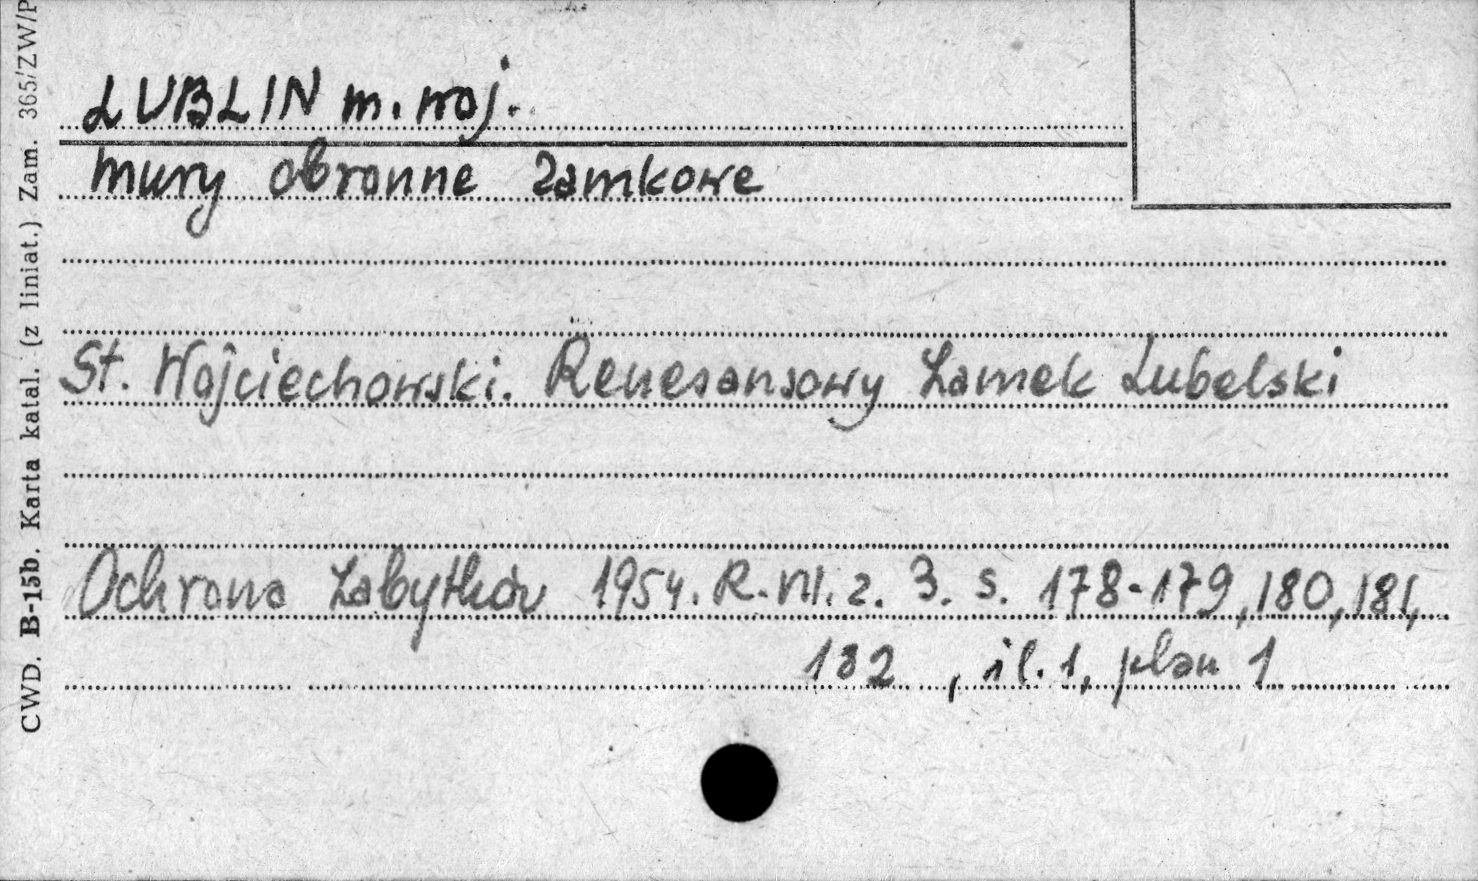 LUBLIN m. woj.
mury obronne zamkowe
St. Wojciechowski. Renesansowy Zamek Lubelski
Ochrona Zabytków 1954. R. VII. z. 3. s. 178-179, 180, 181,
182 , il. 1, plan 1
CWD. B-15b. Karta katal. (z liniat.) Zam. 365/ZW/P